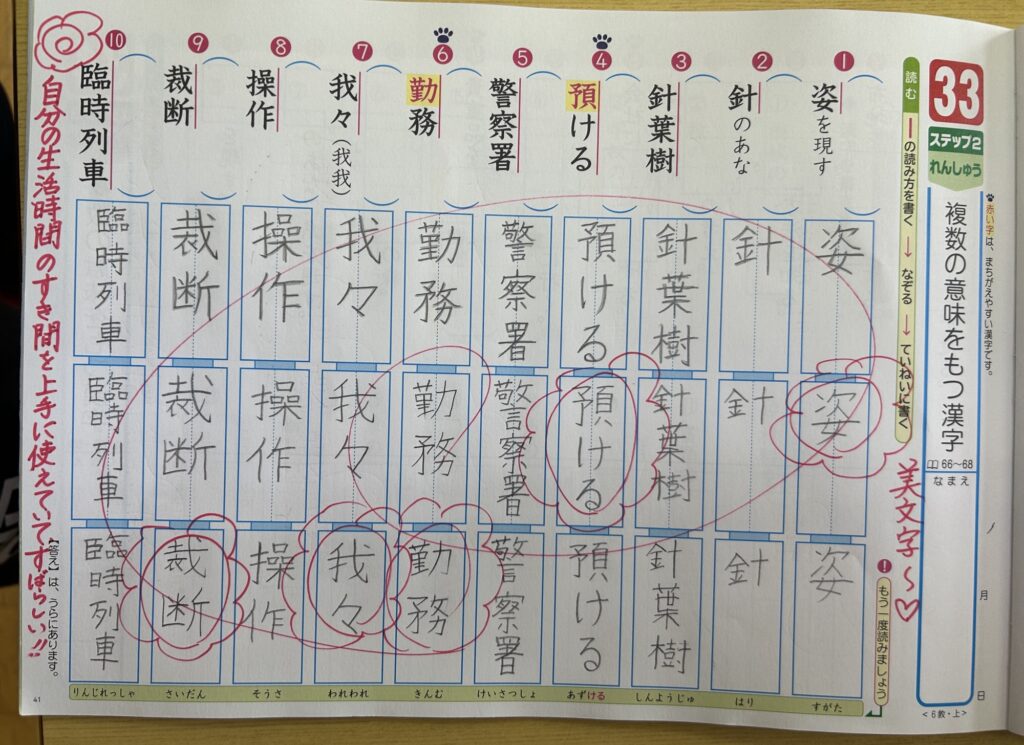 33
ステップ2
れんしゅう
🐾赤い字は、まちがえやすい漢字です。
複数の意味をもつ漢字
66〜68
なまえ
月
日
<6教・上>
読む
ーの読み方を書く→なぞる→ていねいに書く
美文字〜♡
!
もう一度読みましょう
1
姿を現す
姿
姿
姿
すがた
2
針のあな
針
針
針
はり
3
針葉樹
針葉樹
針葉樹
針葉樹
しんようじゅ
4
預ける
預ける
預ける
預ける
あずける
5
警察署
警察署
警察署
警察署
けいさつしょ
6
勤務
勤務
勤務
勤務
きんむ
7
我々(我我)
我々
我々
我々
われわれ
8
操作
操作
操作
操作
そうさ
9
裁断
裁断
裁断
裁断
さいだん
10
臨時列車
臨時列車
臨時列車
臨時列車
りんじれっしゃ
自分の生活時間のすき間を上手に使えていてすばらしい!!
【答え】は、うらにあります。
41